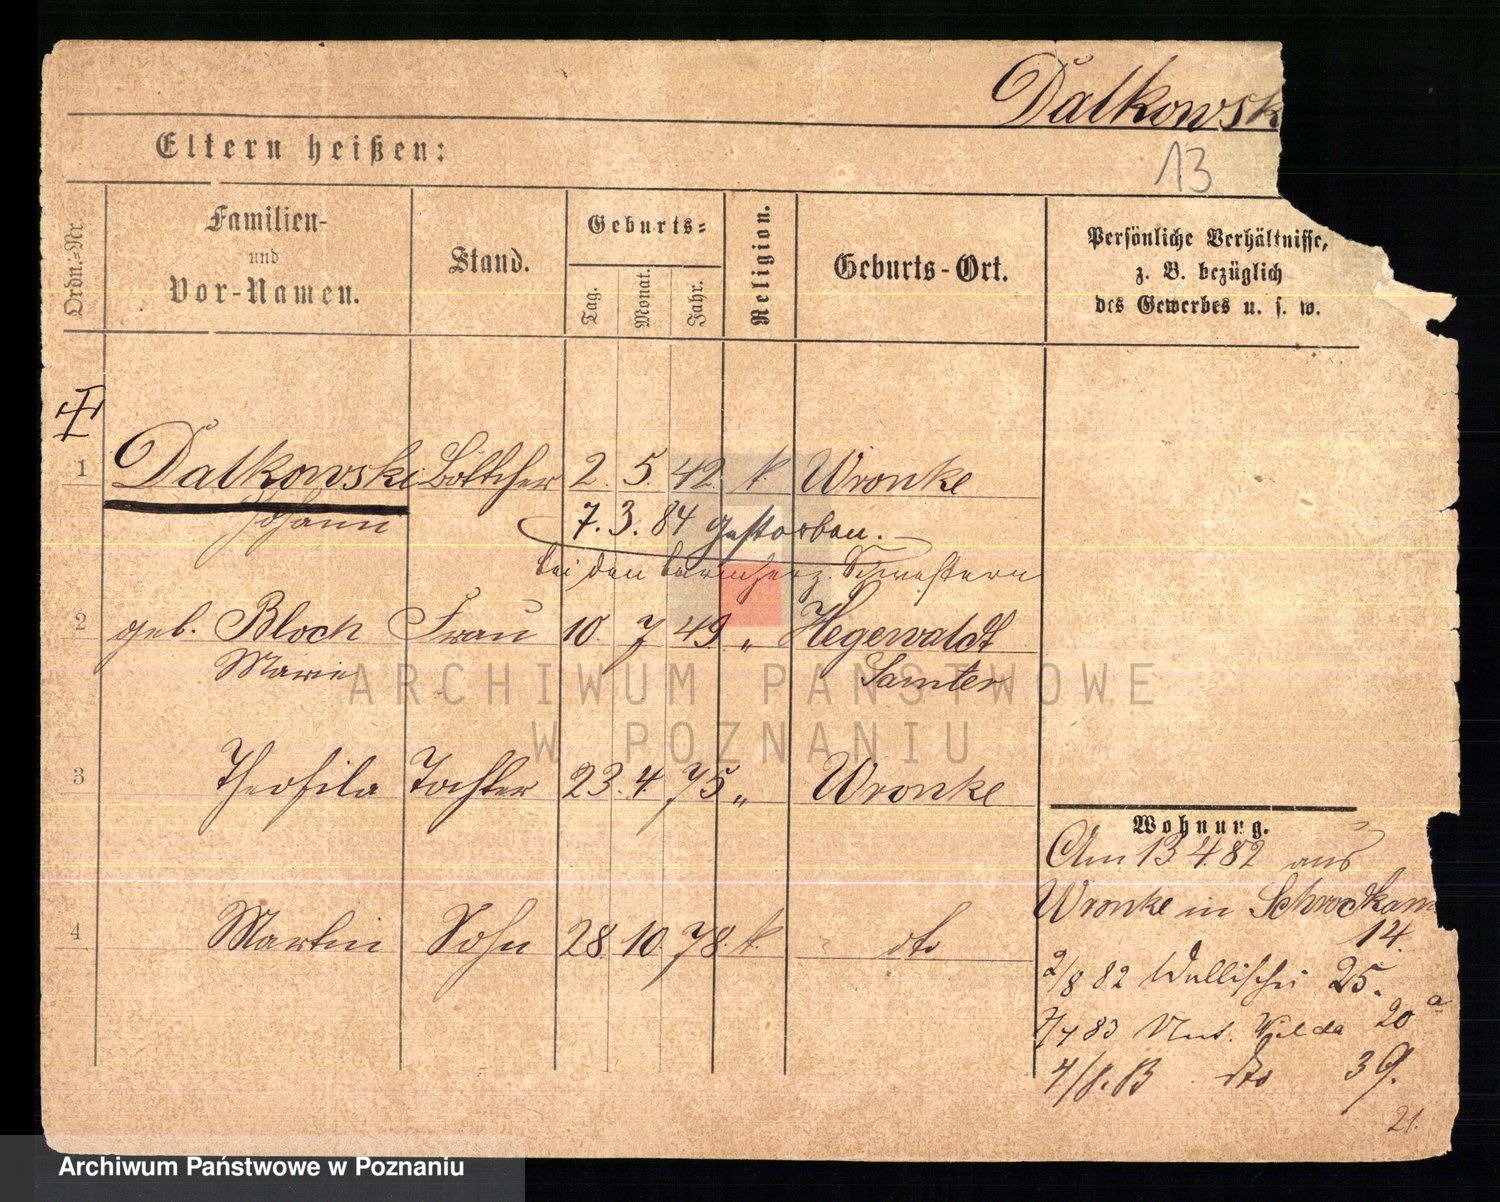 Datkowsk
13
Eltern heißen:
Ordn.-Nr.
Familien-
und
Vor-Namen.
Stand.
Geburts-
Tag.
Monat.
Jahr.
Religion.
Geburts-Ort.
Persönliche Verhältnisse,
z. B. bezüglich
des Gewerbes u. s. w.
1 Datkowski Böttcher 2. 5. 42. k. Wronke
Johann
7. 3. 84 gestorben.
bei den barmherz. Schwestern
2 geb. Bloch Frau 10. 7 49 „ Hegewaldt
Marie Samter
3 Theofila Tochter 23. 4. 75 „ Wronke
4 Martin Sohn 28. 10. 78. k. dto
Wohnung.
Am 13 4 82 aus
Wronke in
14.
2/8 82 Wallischei 25.
7/4 83 Unt. Wilda 20 a
4/8. 83 dto 39.
21.
ARCHIWUM PAŃSTWOWE
W POZNANIU
Archiwum Państwowe w Poznaniu